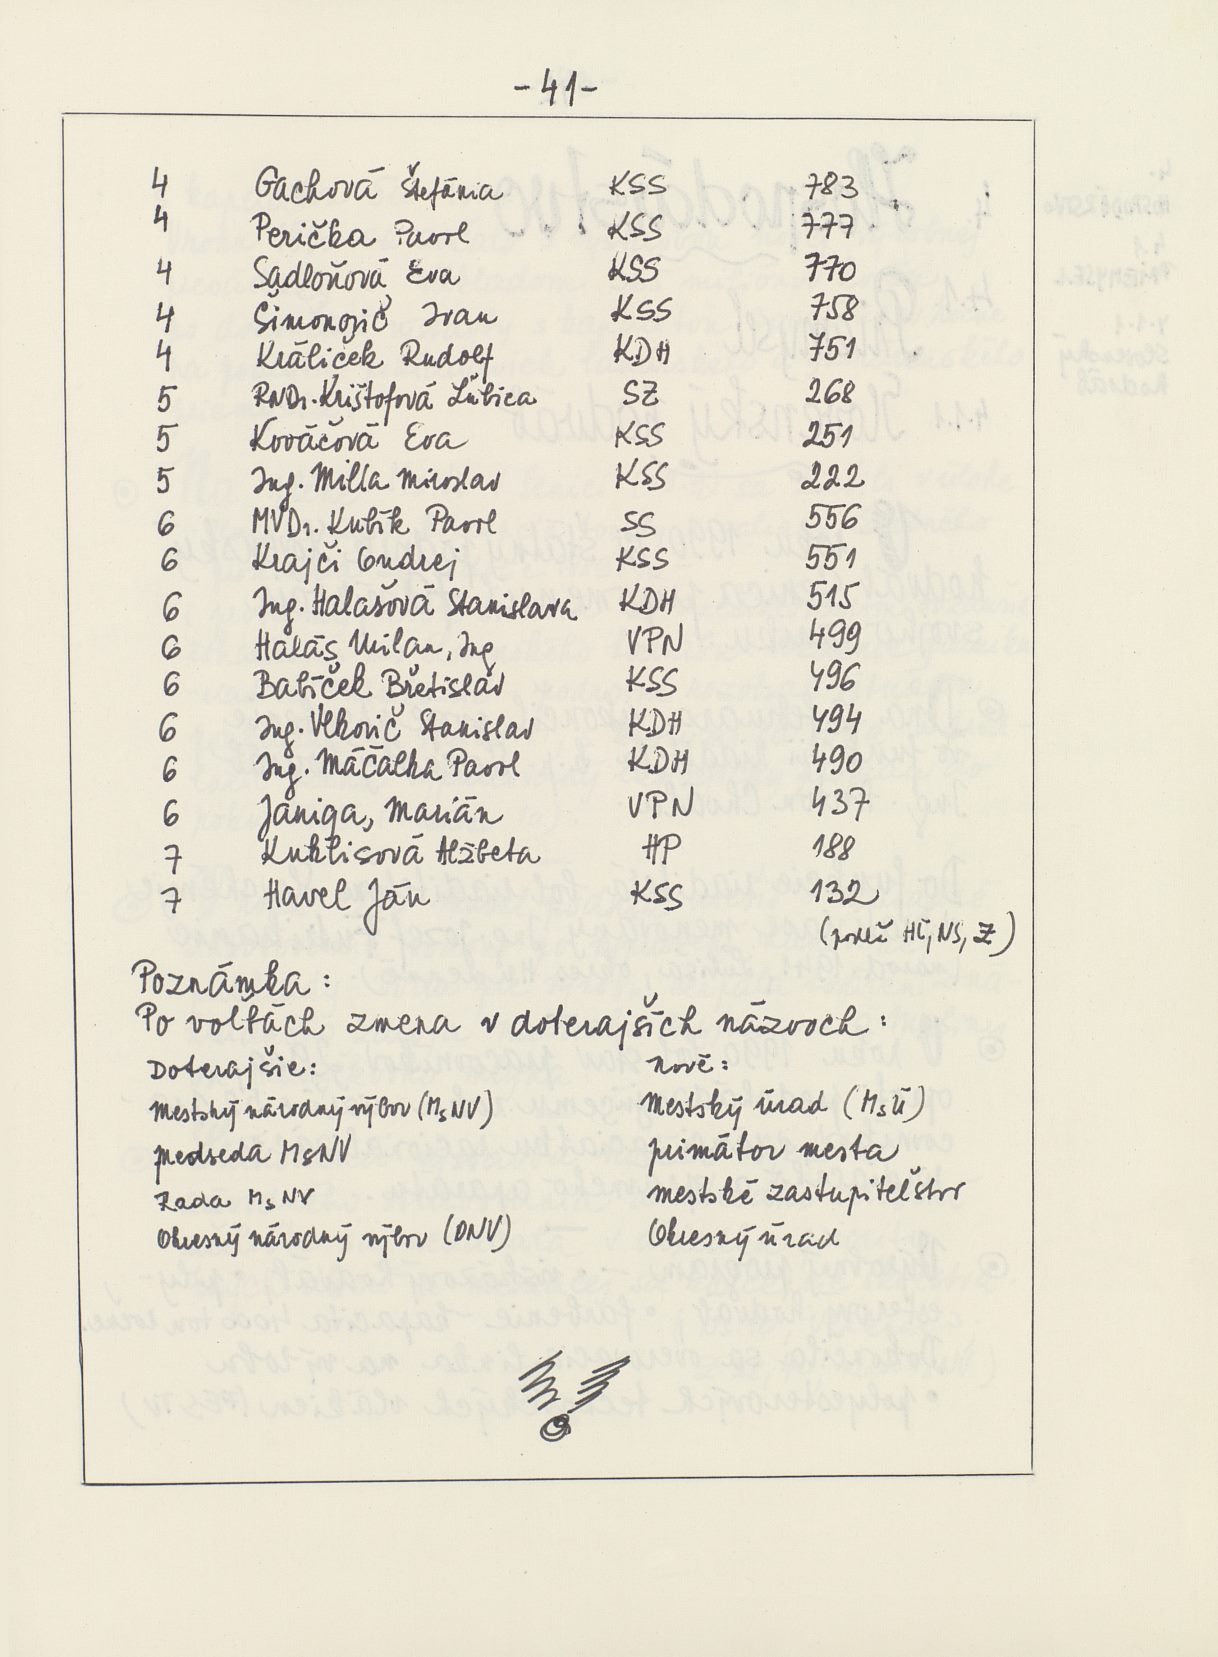 -41-
4 Gachová Štefánia KSS 783
4 Perička Pavol KSS 777
4 Sadloňová Eva KSS 770
4 Šimonovič Ivan KSS 758
4 Králiček Rudolf KDH 751
5 RNDr. Krištofová Ľubica SZ 268
5 Kováčová Eva KSS 251
5 Ing. Milla Miroslav KSS 222
6 MVDr. Kubík Pavol SS 556
6 Krajči Ondrej KSS 551
6 Ing. Halašová Stanislava KDH 515
6 Halás Milan, Ing VPN 499
6 Babíček Břetislav KSS 496
6 Ing. Vlkovič Stanislav KDH 494
6 Ing. Máčalka Pavol KDH 490
6 Janiga, Marián VPN 437
7 Kuklisová Alžbeta HP 188
7 Havel Ján KSS 132
(podľa NS, Z)
Poznámka:
Po voľbách zmena v doterajších názvoch:
Doterajšie: nové:
Mestský národný výbor (MsNV) Mestský úrad (MsÚ)
predseda MsNV primátor mesta
Rada MsNV mestské zastupiteľstvo
Okresný národný výbor (ONV) Okresný úrad